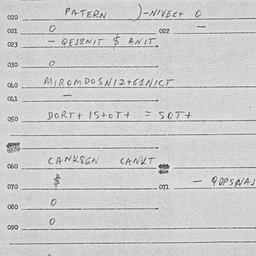 020 PATERN )-NIVECT Q
021 O 022 —
023 - QEJSNIT $ ANIT
030 O
040 MIROMDOSNIZ+G1NICT
041 —
050 DORT+ IS+OT+ = SOT+
060 CANKSEN CANKT
070 $ 071 - QOPSNAJ
080 O
090 O